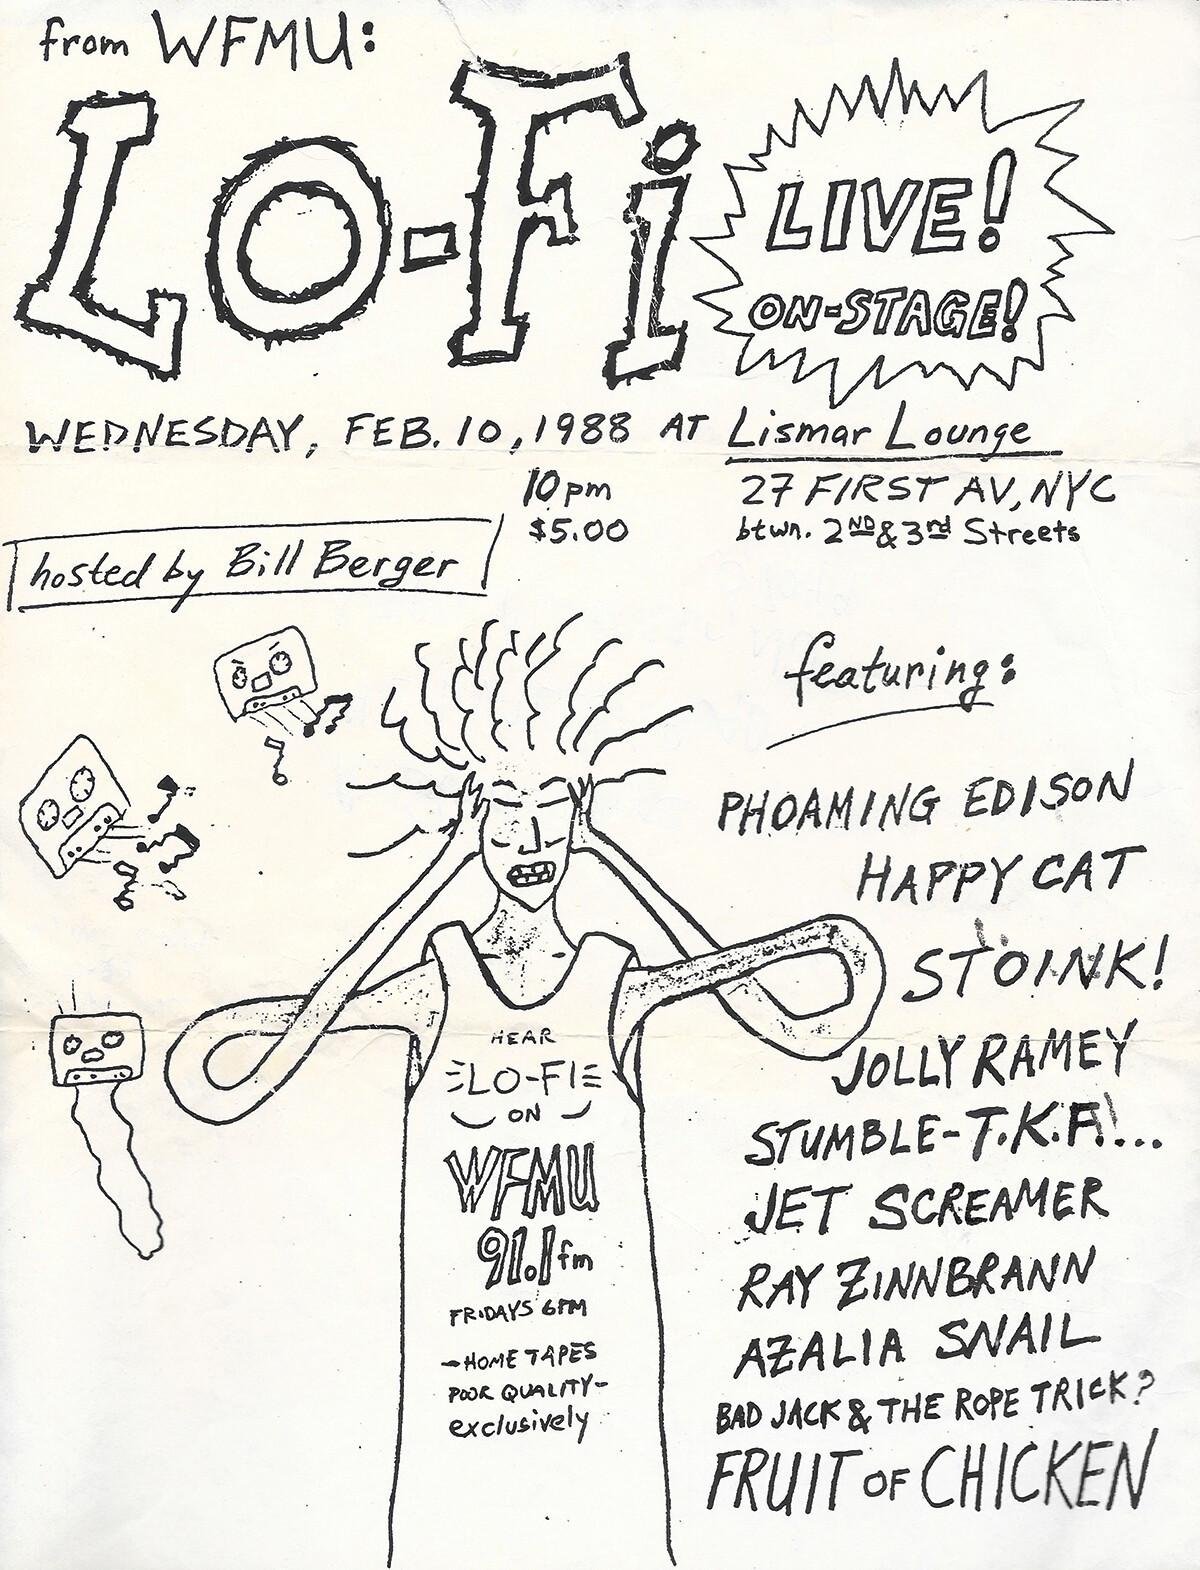 from WFMU:
Lo-Fi
LIVE!
ON-STAGE!
WEDNESDAY, FEB. 10, 1988 AT Lismar Lounge
10pm
$5.00
27 FIRST AV, NYC
btwn. 2ND & 3rd Streets
hosted by Bill Berger
featuring:
PHOAMING EDISON
HAPPY CAT
STOINK!
JOLLY RAMEY
STUMBLE-T.K.F!...
JET SCREAMER
RAY ZINNBRANN
AZALIA SNAIL
BAD JACK & THE ROPE TRICK?
FRUIT OF CHICKEN
HEAR
LO-FI
ON
WFMU
91.1 fm
FRIDAYS 6PM
-HOME TAPES
POOR QUALITY-
exclusively